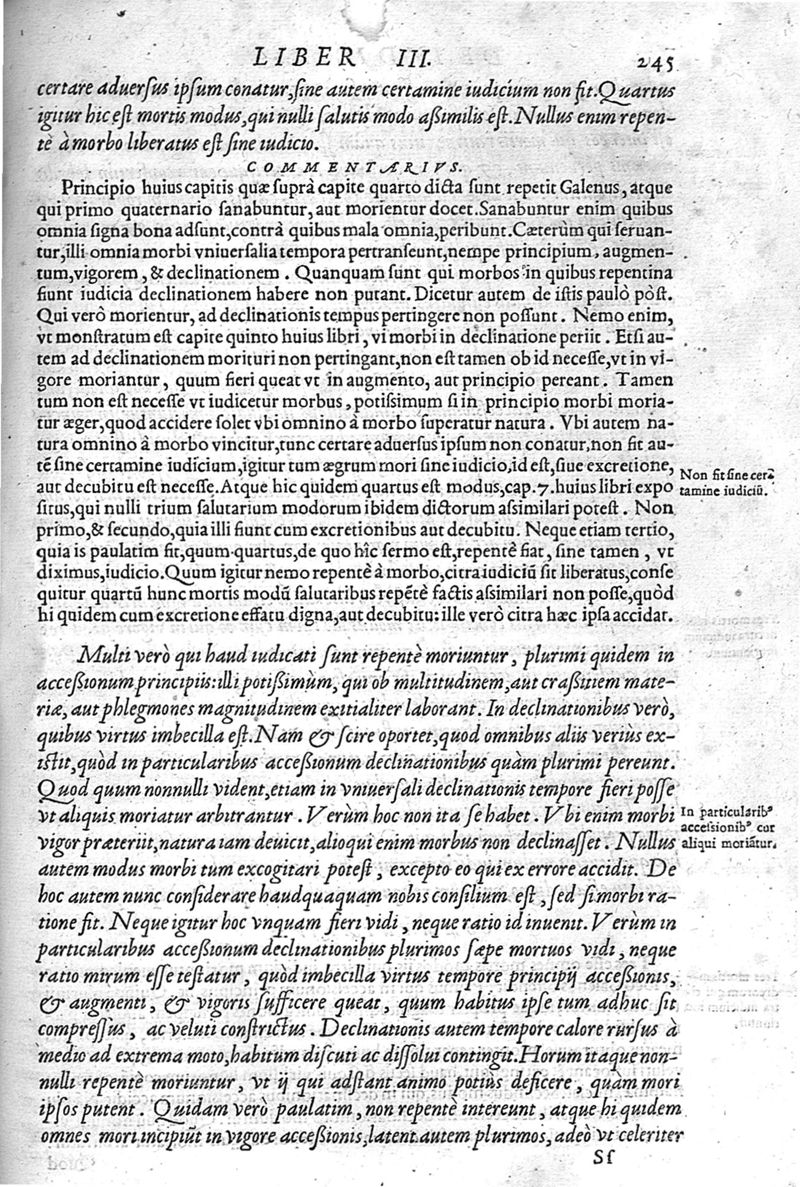 LIBER III. 245
certare aduersus ipsum conatur, sine autem certamine iudicium non fit. Quartus
igitur hic est mortis modus, qui nulli salutis modo aßimilis est. Nullus enim repen-
tè à morbo liberatus est sine iudicio.
COMMENTARIVS.
Principio huius capitis quæ suprà capite quarto dicta sunt repetit Galenus, atque
qui primo quaternario sanabuntur, aut morientur docet. Sanabuntur enim quibus
omnia signa bona adsunt, contrà quibus mala omnia, peribunt. Cæterùm qui seruan-
tur, illi omnia morbi vniuersalia tempora pertranseunt, nempe principium, augmen-
tum, vigorem, & declinationem. Quanquam sunt qui morbos in quibus repentina
fiunt iudicia declinationem habere non putant. Dicetur autem de istis paulò pòst.
Qui verò morientur, ad declinationis tempus pertingere non possunt. Nemo enim,
vt monstratum est capite quinto huius libri, vi morbi in declinatione periit. Etsi au-
tem ad declinationem morituri non pertingant, non est tamen ob id necesse, vt in vi-
gore moriantur, quum fieri queat vt in augmento, aut principio pereant. Tamen
tum non est necesse vt iudicetur morbus, potißimum si in principio morbi moria-
tur æger, quod accidere solet vbi omnino à morbo superatur natura. Vbi autem na-
tura omnino à morbo vincitur, tunc certare aduersus ipsum non conatur, non fit au-
tē sine certamine iudicium, igitur tum ægrum mori sine iudicio, id est, siue excretione,
aut decubitu est necesse. Atque hic quidem quartus est modus, cap. 7. huius libri expo
situs, qui nulli trium salutarium modorum ibidem dictorum assimilari potest. Non
primo, & secundo, quia illi fiunt cum excretionibus aut decubitu. Neque etiam tertio,
quia is paulatim fit, quum quartus, de quo hîc sermo est, repentè fiat, sine tamen, vt
diximus, iudicio. Quum igitur nemo repentè à morbo, citra iudiciū sit liberatus, conse
quitur quartū hunc mortis modū salutaribus repētè factis assimilari non posse, quòd
hi quidem cum excretione effatu digna, aut decubitu: ille verò citra hæc ipsa accidat.
Non fit sine cer-
tamine iudiciū.
Multi verò qui haud iudicati sunt repentè moriuntur, plurimi quidem in
acceßionum principiis: illi potißimùm, qui ob multitudinem, aut craßitiem mate-
riæ, aut phlegmones magnitudinem exitialiter laborant. In declinationibus verò,
quibus virtus imbecilla est. Nam & scire oportet, quod omnibus aliis veriùs ex-
istit, quòd in particularibus acceßionum declinationibus quàm plurimi pereunt.
Quod quum nonnulli vident, etiam in vniuersali declinationis tempore fieri posse
vt aliquis moriatur arbitrantur. Verùm hoc non ita se habet. Vbi enim morbi
vigor præteriit, natura iam deuicit, alioqui enim morbus non declinasset. Nullus
autem modus morbi tum excogitari potest, excepto eo qui ex errore accidit. De
hoc autem nunc considerare haudquaquam nobis consilium est, sed si morbi ra-
tione fit. Neque igitur hoc vnquam fieri vidi, neque ratio id inuenit. Verùm in
particularibus acceßionum declinationibus plurimos sæpe mortuos vidi, neque
ratio mirum esse testatur, quòd imbecilla virtus tempore principij acceßionis,
& augmenti, & vigoris sufficere queat, quum habitus ipse tum adhuc sit
compressus, ac veluti constrictus. Declinationis autem tempore calore rursus à
medio ad extrema moto, habitum discuti ac dissolui contingit. Horum itaque non-
nulli repentè moriuntur, vt ij qui adstant animo potiùs deficere, quàm mori
ipsos putent. Quidam verò paulatim, non repentè intereunt, atque hi quidem
omnes mori incipiūt in vigore acceßionis, latent autem plurimos, adeò vt celeriter
In particularibꝰ
accessionibꝰ cur
aliqui moriātur.
Sſ